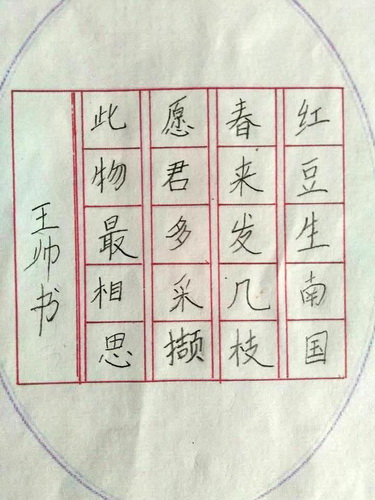 红豆生南国
春来发几枝
愿君多采撷
此物最相思
王帅书